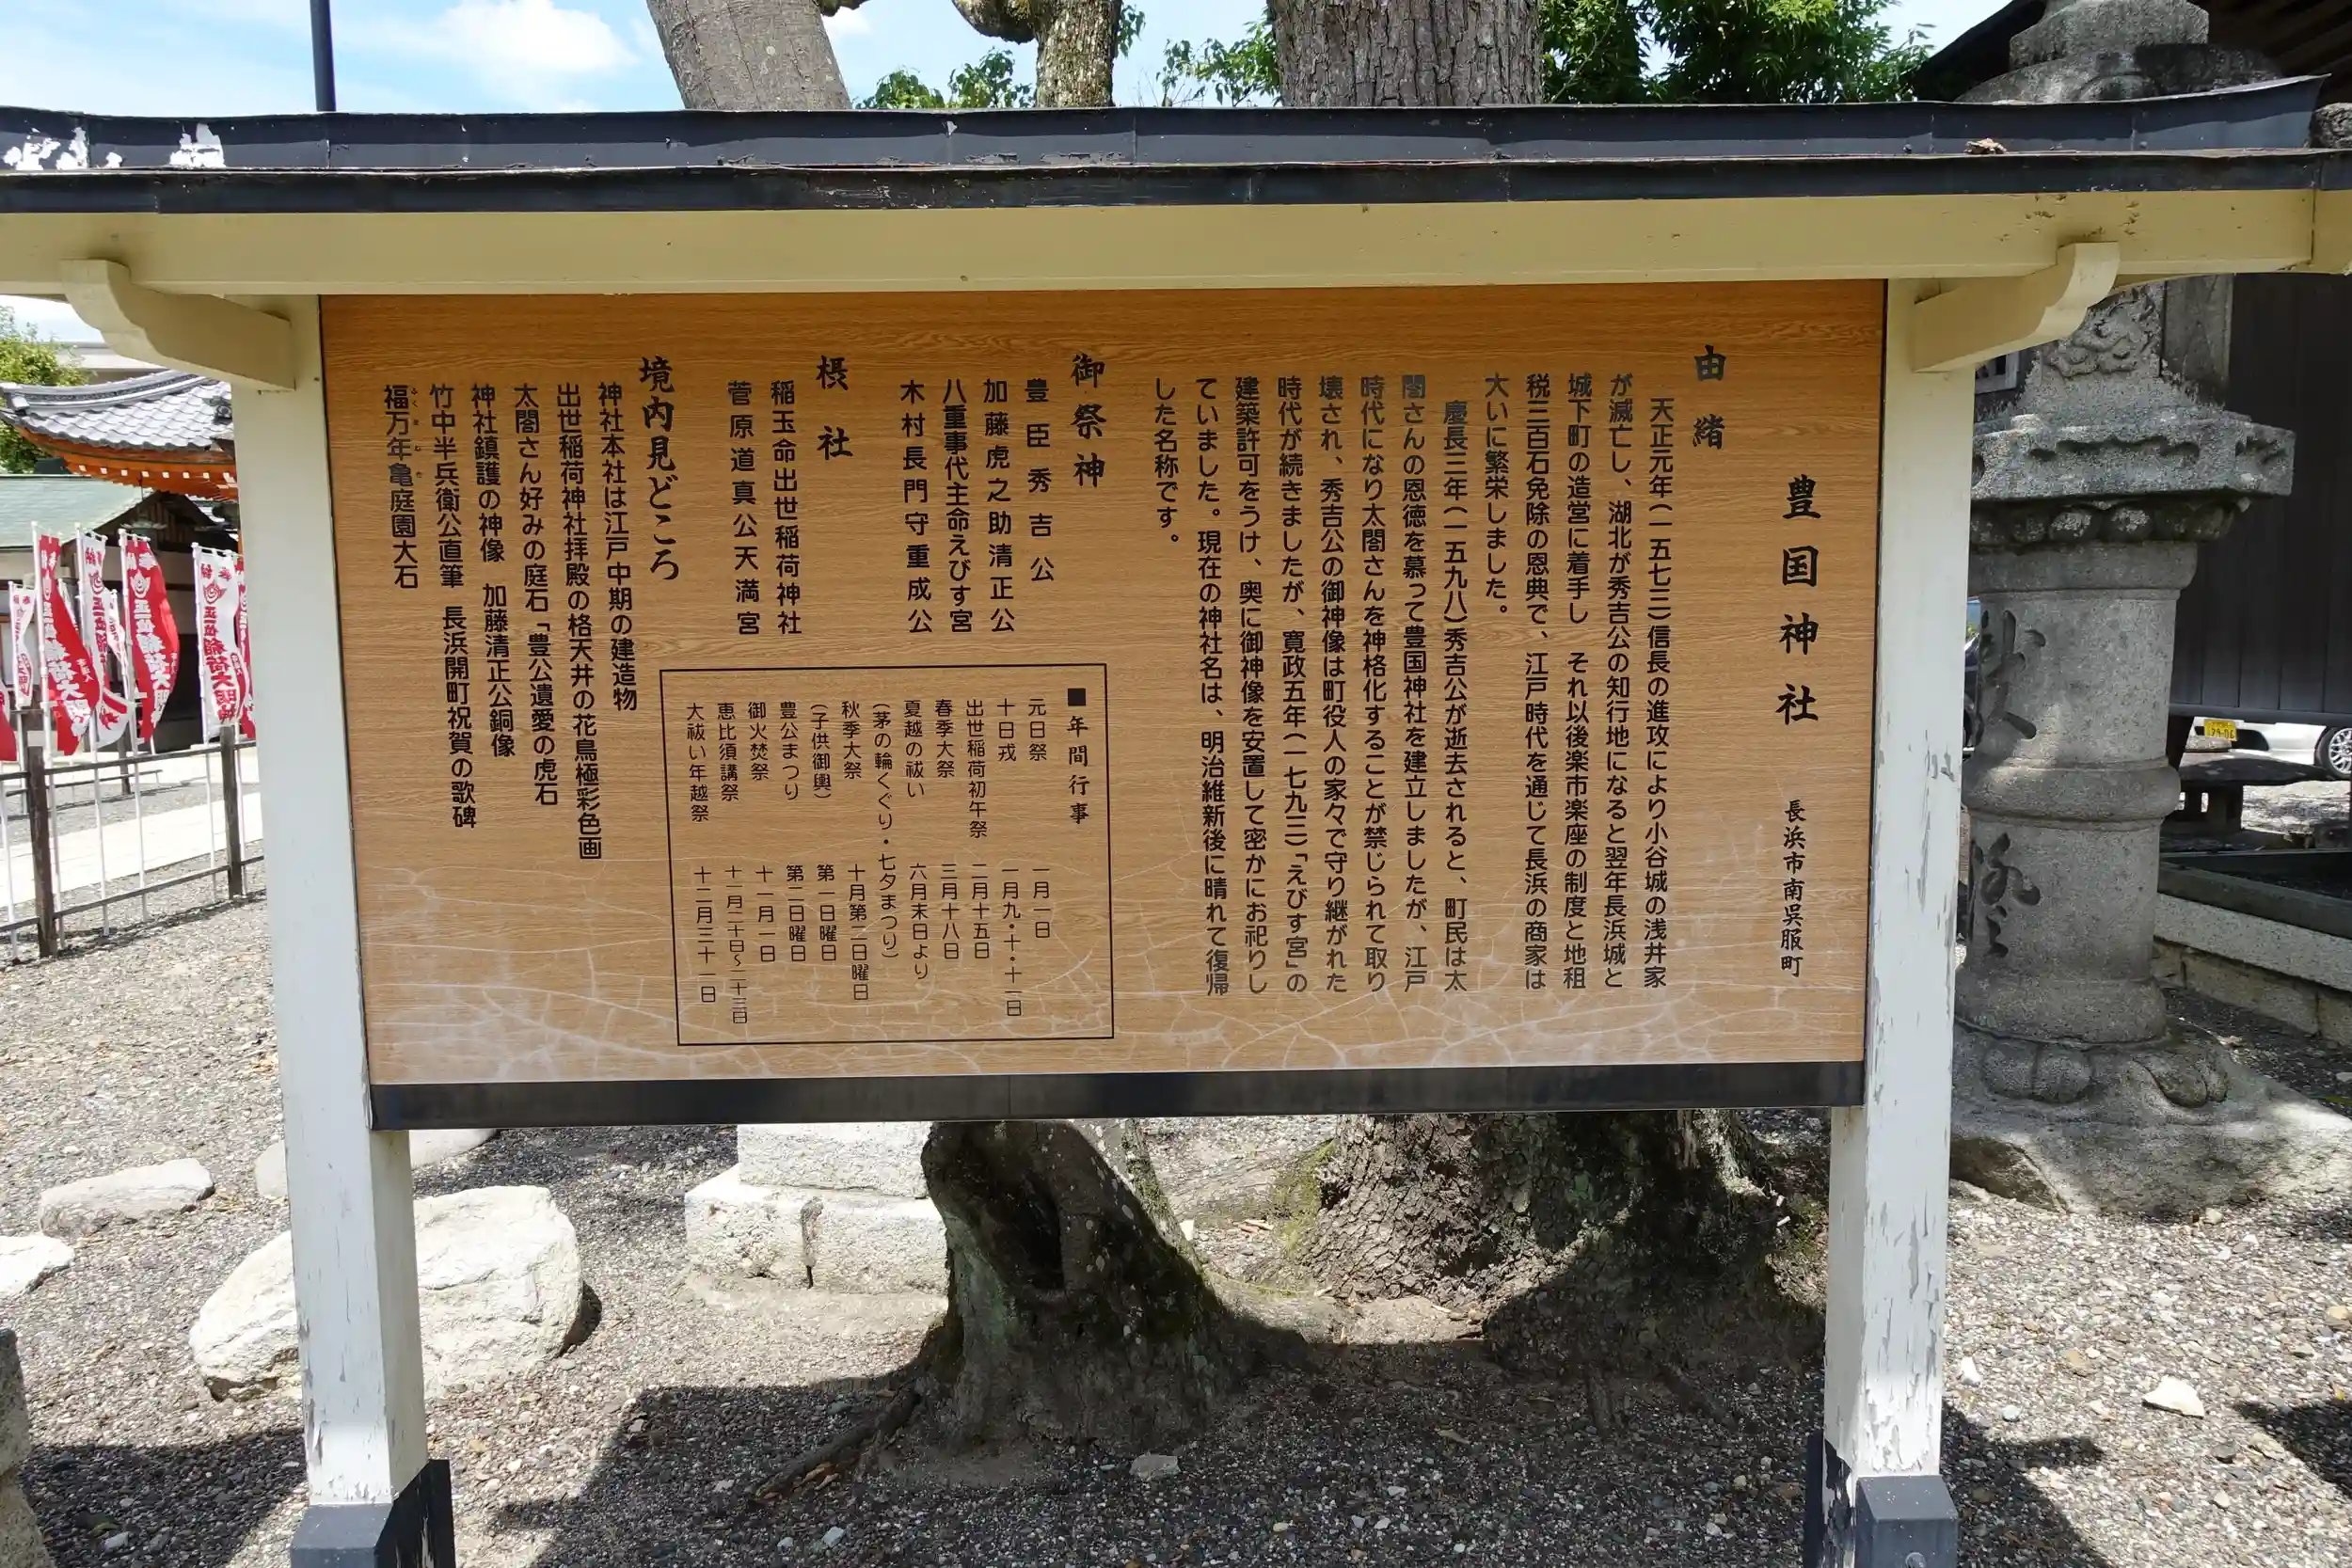 豊国神社
長浜市南呉服町
由緒
天正元年(一五七三)信長の進攻により小谷城の浅井家
が滅亡し、湖北が秀吉公の知行地になると翌年長浜城と
城下町の造営に着手し それ以後楽市楽座の制度と地租
税三百石免除の恩典で、江戸時代を通じて長浜の商家は
大いに繁栄しました。
慶長三年(一五九八)秀吉公が逝去されると、町民は太
閤さんの恩徳を慕って豊国神社を建立しましたが、江戸
時代になり太閤さんを神格化することが禁じられて取り
壊され、秀吉公の御神像は町役人の家々で守り継がれた
時代が続きましたが、寛政五年(一七九三)「えびす宮」の
建築許可をうけ、奥に御神像を安置して密かにお祀りし
ていました。現在の神社名は、明治維新後に晴れて復帰
した名称です。
御祭神
豊臣秀吉公
加藤虎之助清正公
八重事代主命えびす宮
木村長門守重成公
摂社
稲玉命出世稲荷神社
菅原道真公天満宮
■年間行事
元日祭 一月一日
十日戎 一月九・十・十一日
出世稲荷初午祭 二月十五日
春季大祭 三月十八日
夏越の祓い 六月末日より
(茅の輪くぐり・七夕まつり)
秋季大祭 十月第二日曜日
(子供御輿) 第一日曜日
豊公まつり 第二日曜日
御火焚祭 十一月一日
恵比須講祭 十一月二十日~二十三日
大祓い年越祭 十二月三十一日
境内見どころ
神社本社は江戸中期の建造物
出世稲荷神社拝殿の格天井の花鳥極彩色画
太閤さん好みの庭石「豊公遺愛の虎石
神社鎮護の神像 加藤清正公銅像
竹中半兵衛公直筆 長浜開町祝賀の歌碑
福万年亀庭園大石